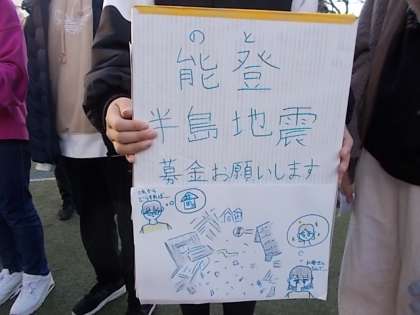 のと
能登
半島地震
募金お願いします
これから